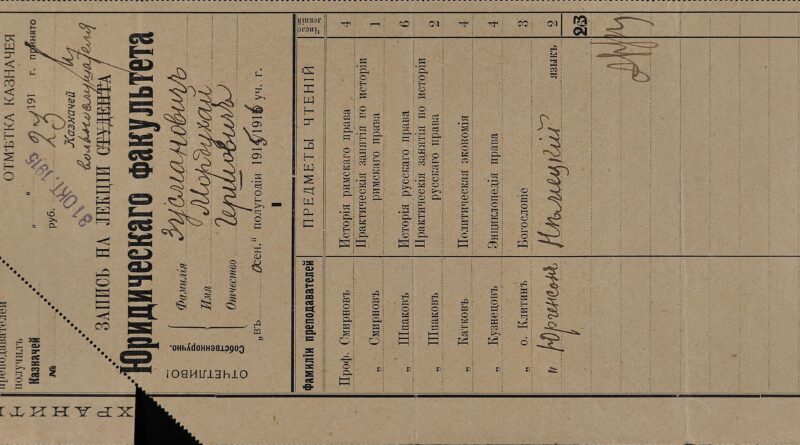 ОТМѢТКА КАЗНАЧЕЯ
191 г. принято
руб. 23
31 ОКТ. 1915
Казначей
вольнослушателя
ЗАПИСЬ НА ЛЕКЦИИ СТУДЕНТА
Юридическаго факультета
Фамилія Зусмановичъ
Имя Мордухай
Отчество Гершовичъ
Собственноручно.
„въ осен.“ полугодіи 1915/1916 уч. г.
ОТЧЕТЛИВО!
преподавателей
получилъ
Казначей
№
ХРАНИТЬ
Фамиліи преподавателей ПРЕДМЕТЫ ЧТЕНІЙ Число лекцій
Проф. Смирновъ Исторія римскаго права 4
„ Смирновъ Практическія занятія по исторіи
римскаго права 1
„ Шпаковъ Исторія русскаго права 6
„ Шпаковъ Практическія занятія по исторіи
русскаго права 2
„ Катковъ Политическая экономія 4
„ Кузнецовъ Энциклопедія права 4
„ о. Клитинъ Богословіе 3
„ Юргенсонъ Нѣмецкій языкъ 2
23